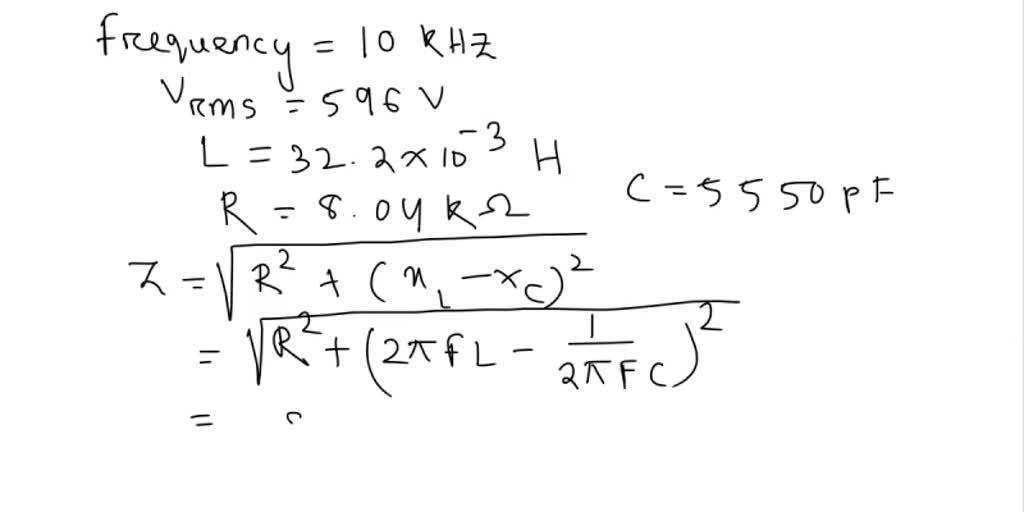 frequency = 10 kHz
VRMS = 596 V
L = 32.2×10⁻³ H
R = 8.04 kΩ
C = 5550 pF
Z = √R² + (xL − xC)²
= √R² + (2πfL − 1/2πFC)²
=